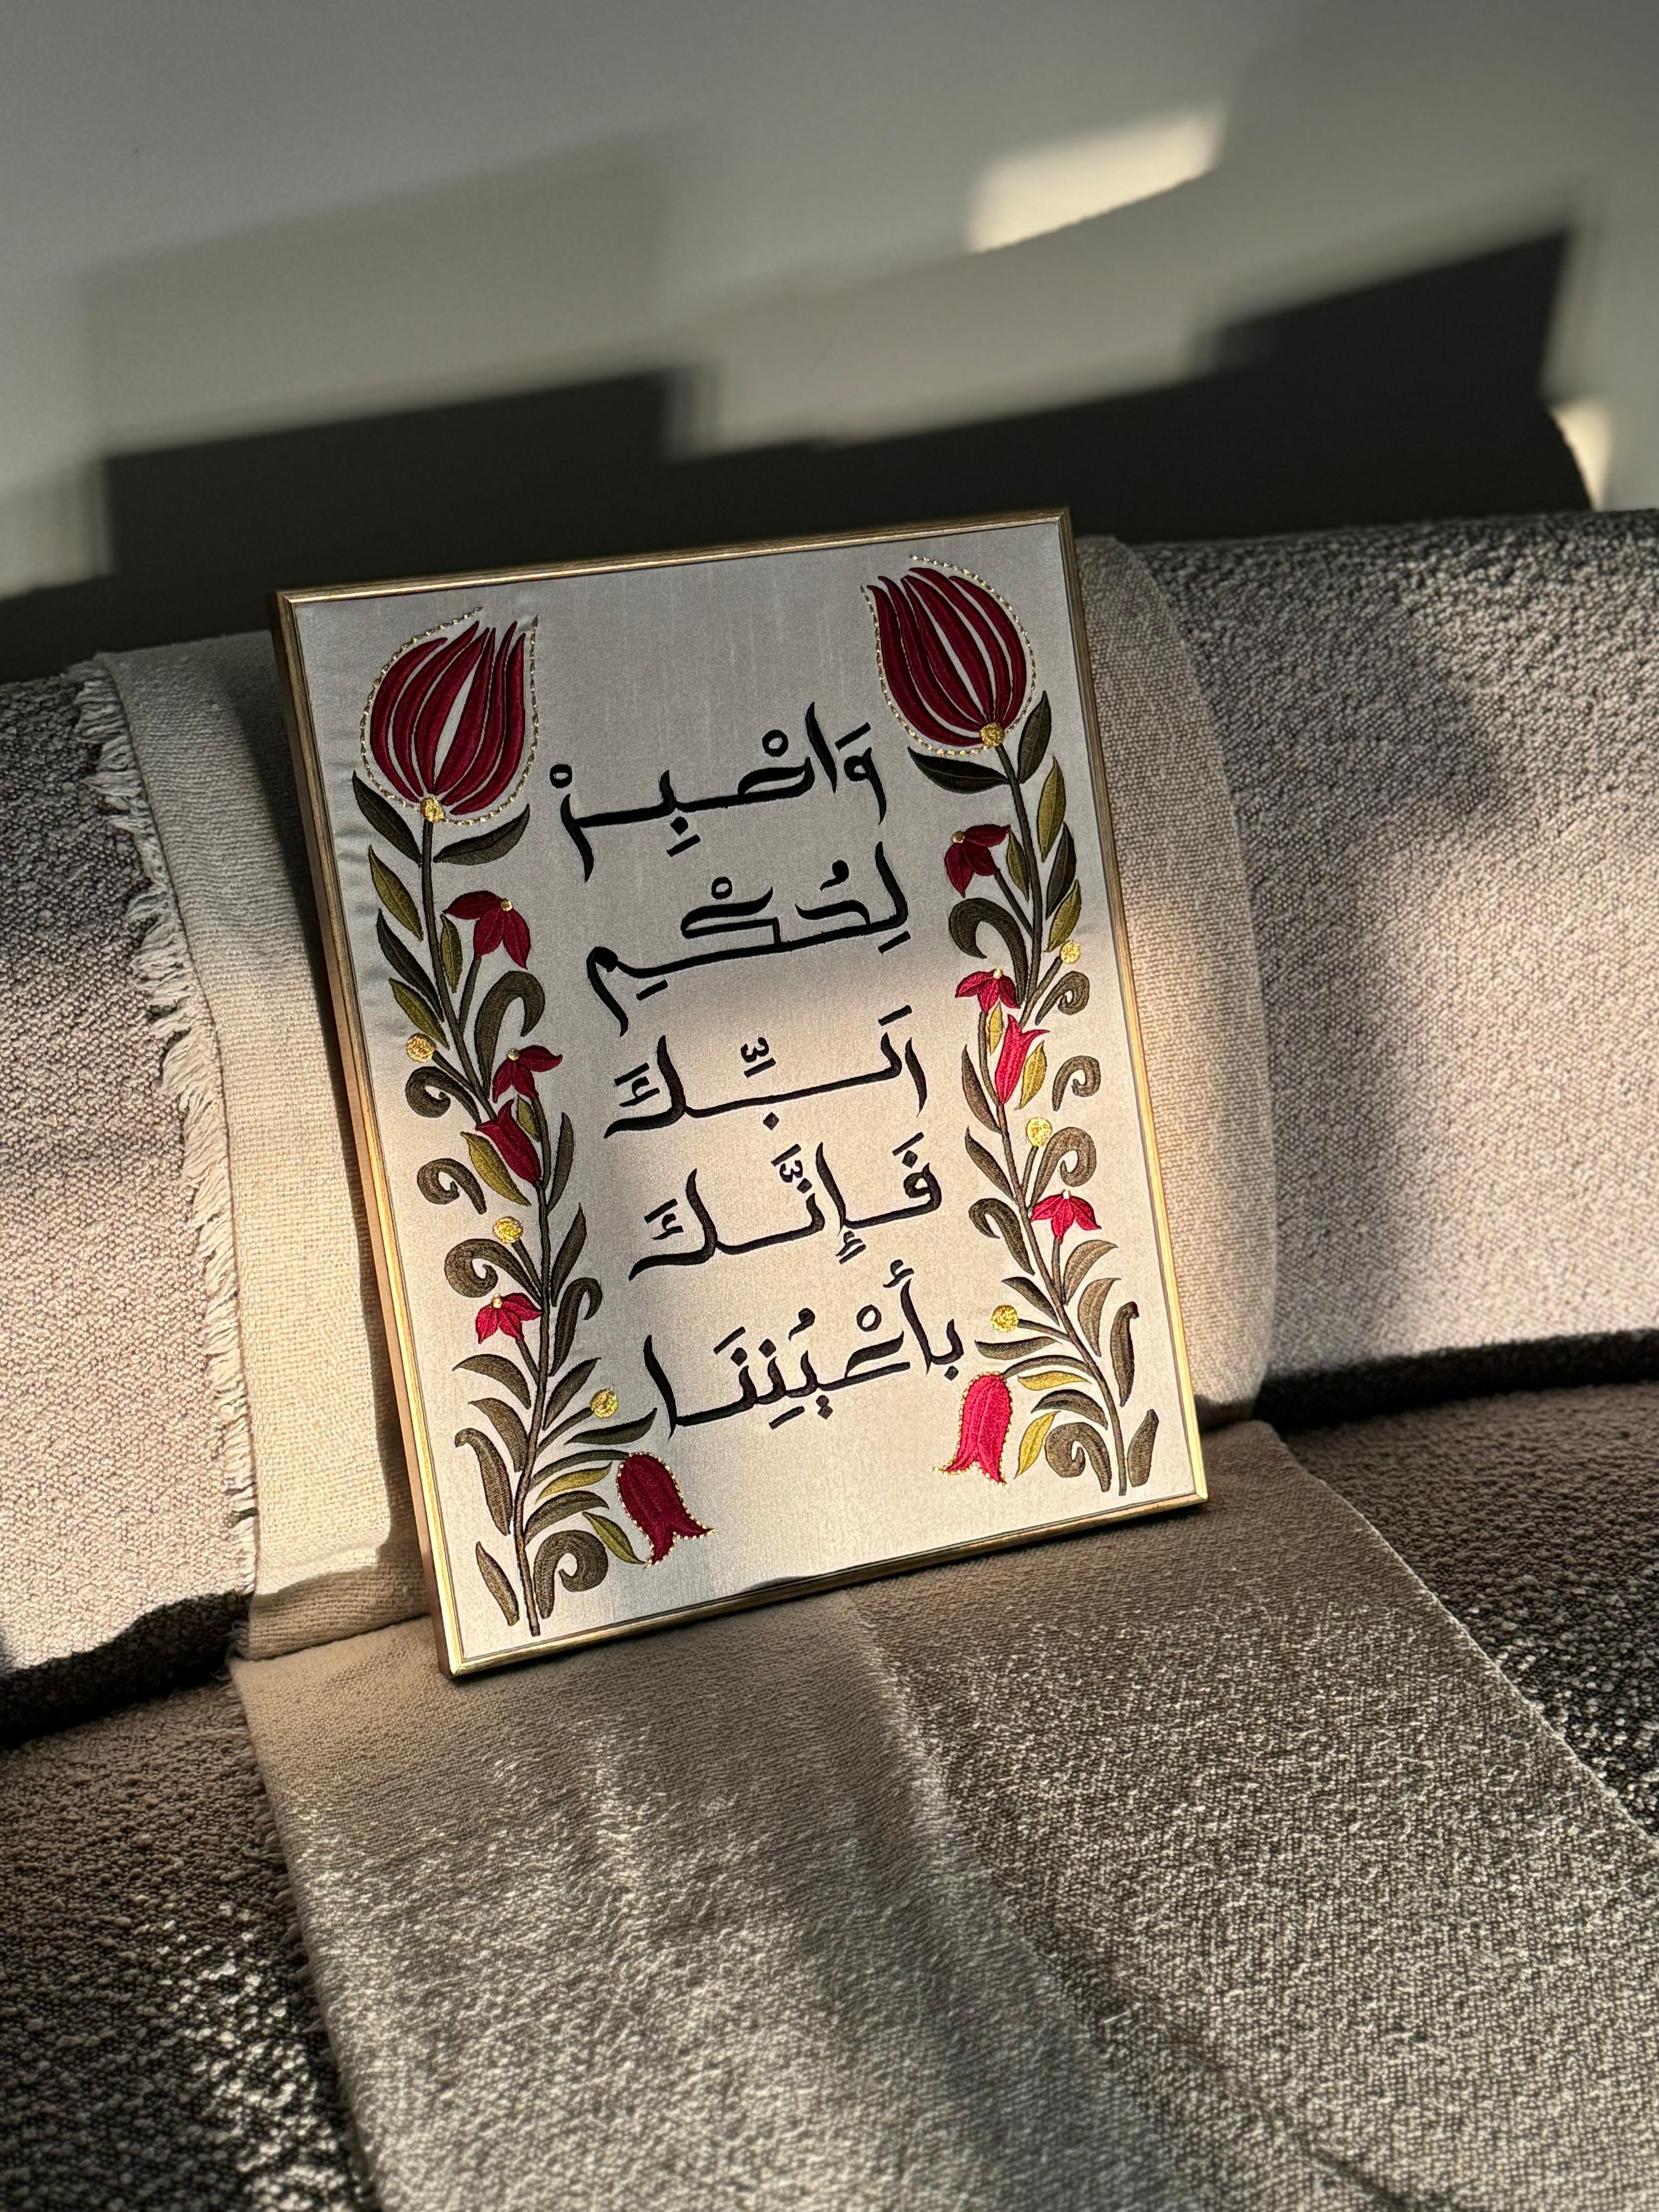 وَاصْبِرْ
لِحُكْمِ
رَبِّكَ
فَإِنَّكَ
بأَعْيُنِنَا